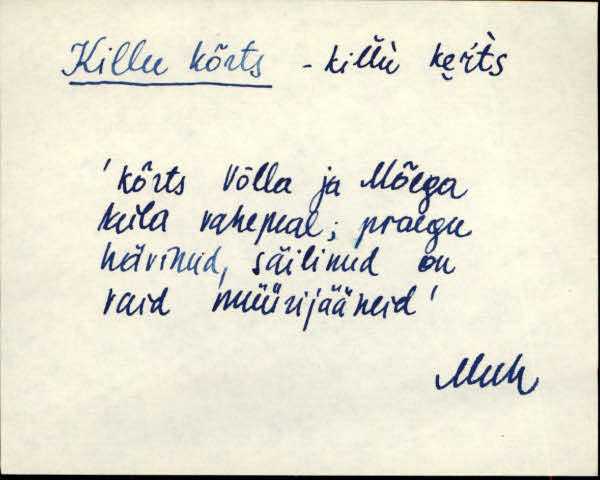 Killu kõrts - killù ke̮r̀ts
'kõrts Võlla ja Mõega
küla vahepeal; praegu
hävinud, säilinud on
vaid müürijääneid'
Muh